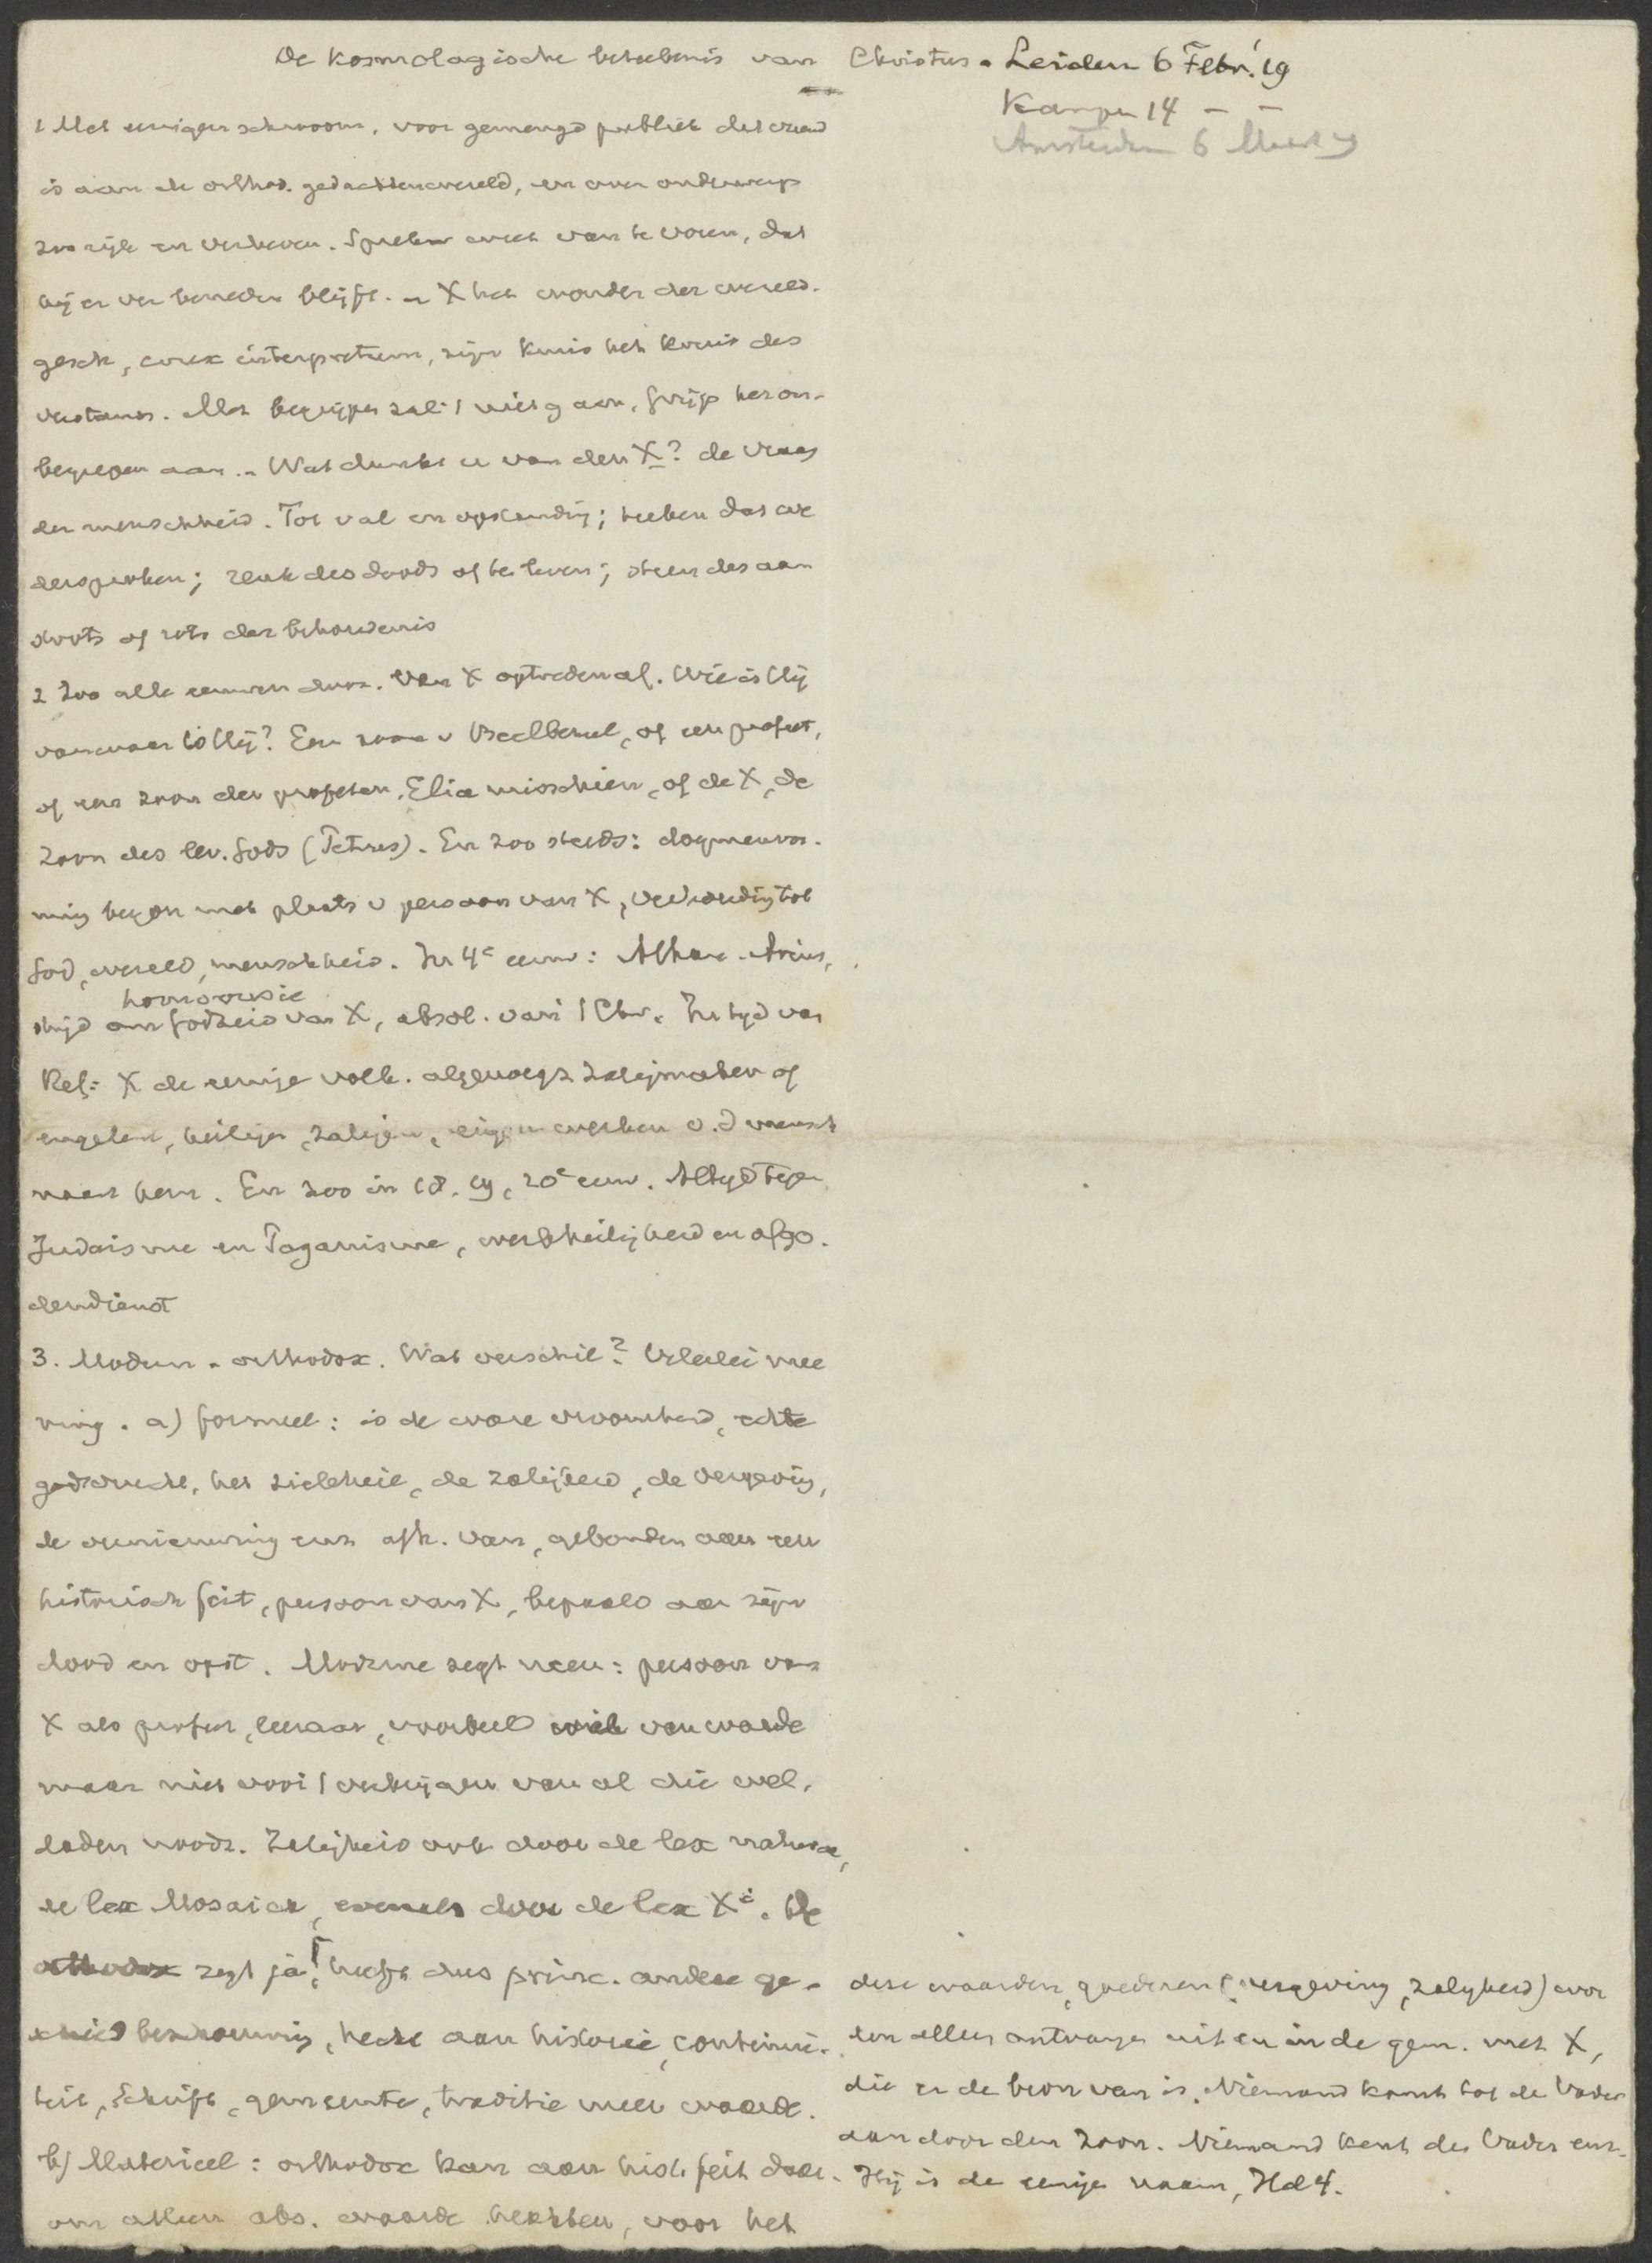 De kosmologische beteekenis van Christus. Leiden 6 Febr. '19
Kampen 14 – –
Amsterdam 6 Maart 19
1 Met eenigen schroom, voor gemengd publiek dat vreemd
is aan de orthod. gedachtenwereld, en over onderwerp
zoo rijk en verheven. Spreker weet van te voren, dat
hij er ver beneden blijft. – X het wonder der wereld.
gesch, crux interpretum, zijn kruis het kruis des
verstands. Met begrijpen zal 't niet gaan, grijp het on-
begrepen aan. – Wat dunkt u van den X? de vraag
der menschheid. Tot val en opstanding; teeken dat we
dersproken; reuk des doods of des levens; steen des aan
stoots of rots der behoudenis
2 Zoo alle eeuwen door. Van X optreden af. Wie is Hij
vanwaar is Hij? Een zoon v Beelzebul, of een profeet,
of een zoon der profeten, Elia misschien, of de X, de
Zoon des lev. Gods (Petrus). En zoo steeds: dogmenvor-
ming begon met plaats v persoon van X, verhouding tot
God, wereld, menschheid. In 4e eeuw: Athan. Arius,
homoousie
strijd om Godheid van X, absol. van 't Chr. In tijd van
Ref: X de eenige volk. algenoegz zaligmaker of
engelen, heiligen, zaligen, eigen werken v. d mensch
naast hem. En zoo in 18, 19, 20e eeuw. Altijd tegen
Judaisme en Paganisme, werkheiligheid en afgo-
dendienst
3. Modern – orthodox. Wat verschil? Velerlei mee
ning. a) formeel: is de ware vroomheid, echte
godsvrucht, het zieleheil, de zaligheid, de vergeving,
de vernieuwing enz afh. van, gebonden aan een
historisch feit, persoon van X, bepaald aan zijn
dood en opst. Moderne zegt neen: persoon van
X als profeet, leeraar, voorbeeld wel van waarde
maar niet voor 't verkrijgen van al die wel-
daden noodz. Zaligheid ook door de lex naturae,
de lex Mosaica, evenals door de lex Xi. De
orthodox zegt ja! heeft dus princ. andere ge-
schied beschouwing, hecht aan historie, continui-
teit, Schrift, gemeente, traditie meer waarde.
b) Materieel: orthodox kan aan hist. feit daar-
om alleen abs. waarde hechten, voor het
deze waarden, goederen (vergeving, zaligheid) wor
den alleen ontvangen uit en in de gem. met X,
die er de bron van is. Niemand komt tot de Vader
dan door den Zoon. Niemand kent den Vader enz.
Hij is de eenige naam, Hd 4.